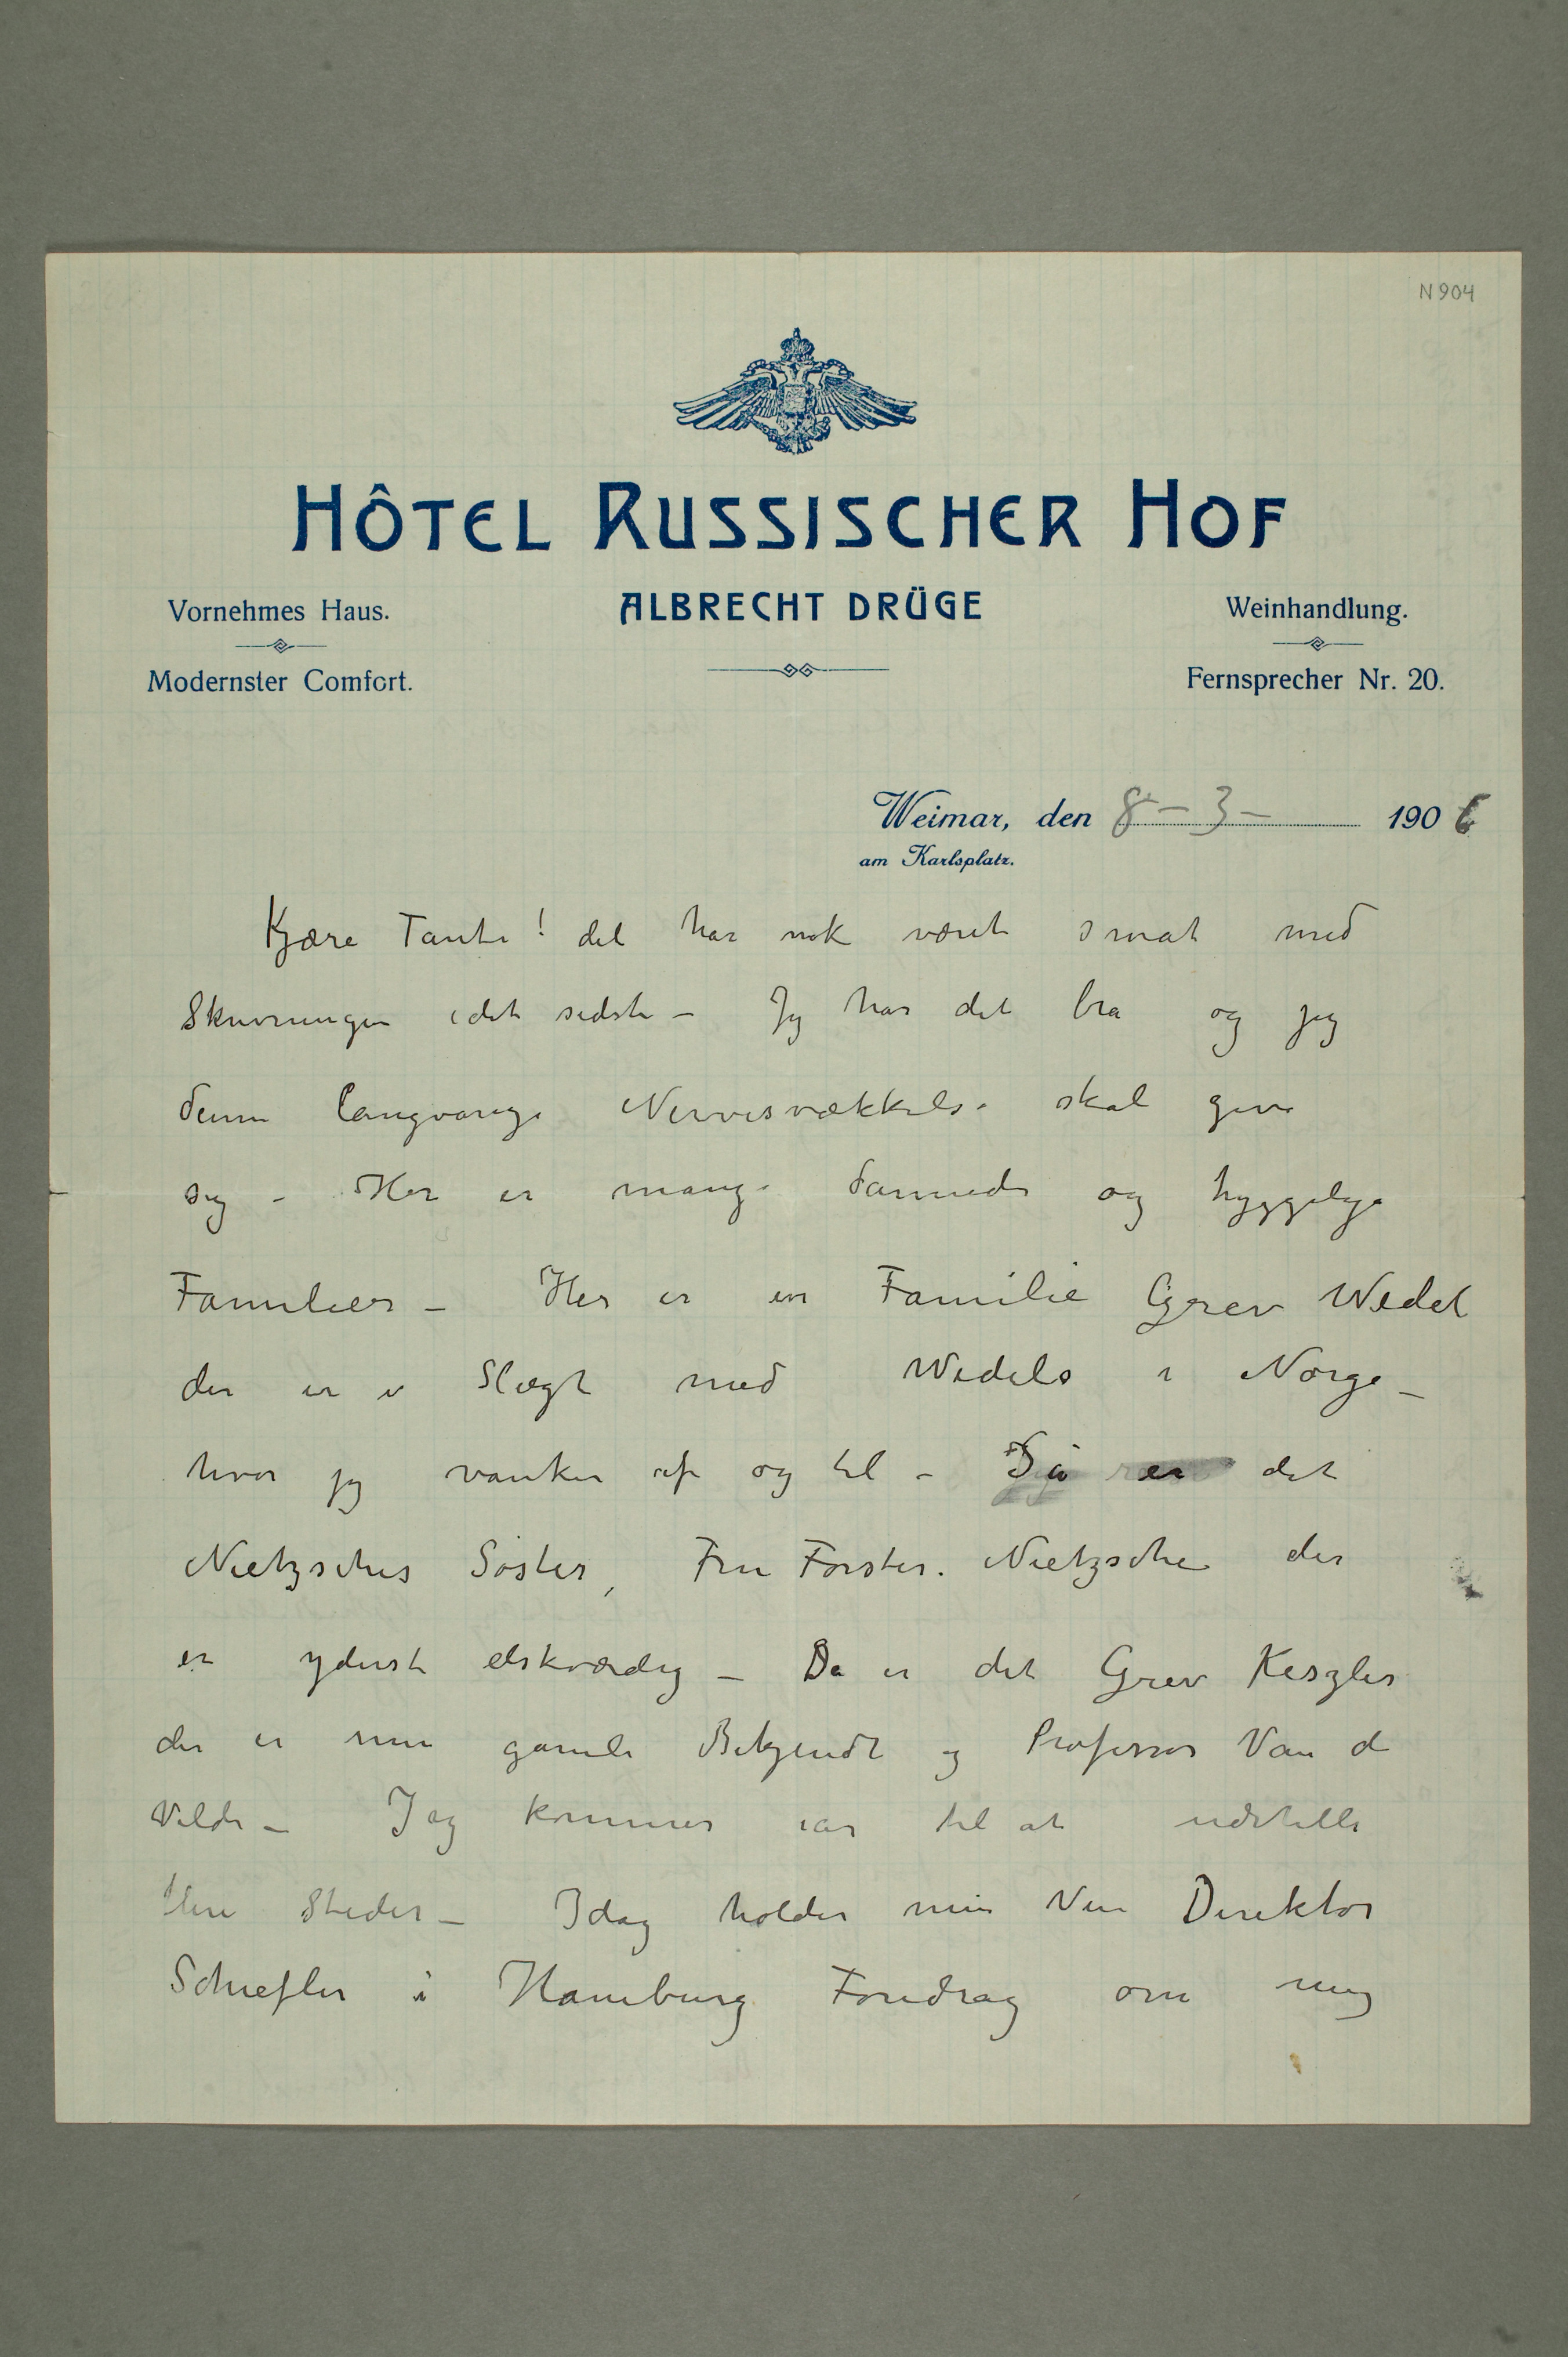 N 904
HÔTEL RUSSISCHER HOF
ALBRECHT DRÜGE
Vornehmes Haus.
Modernster Comfort.
Weinhandlung.
Fernsprecher Nr. 20.
Weimar, den 8 – 3 – 1906
am Karlsplatz.
Kjære Tante! det har nok været smat med
Skrivningen idet sidste – Jeg har det bra og jeg
denne langvarige Nervesvækkelse skal give
sig – Her er mange dannede og hyggelige
Familier – Her er en Familie Grev Wedel
der er i Slægt med Wedels i Norge –
hvor jeg vanker af og til – Så er det
Nietzsches Søster, Fru Førster. Nietzsche der
er yderst elskværdig – Da er det Grev Keszler
der er min gamle Bekjendt og Professor Van d
Velde – Jeg kommer iår til at udstille
flere Steder – Idag holder min Ven Direktør
Schiefler i Hamburg Foredrag om mig